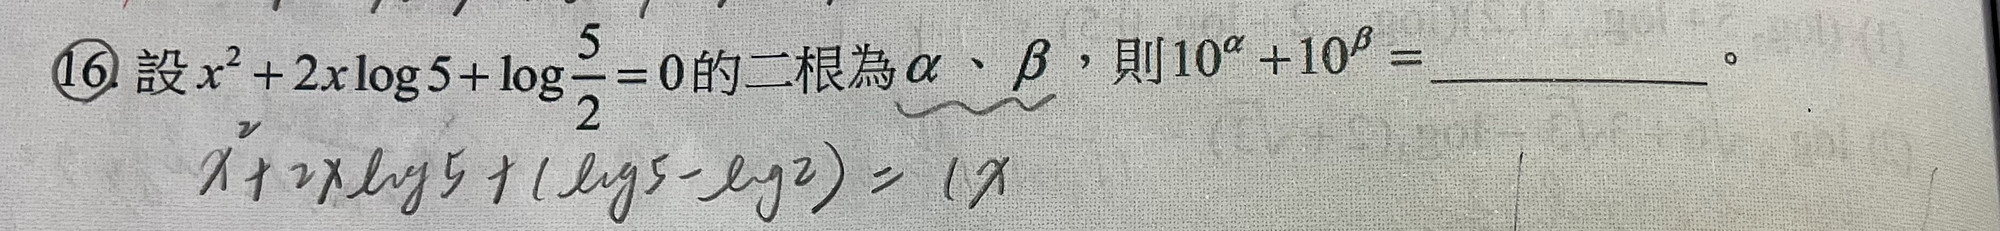 16. 設 x² + 2x log 5 + log 5/2 = 0 的二根為 α、β，則 10^α + 10^β = ＿＿＿＿＿＿。
x² + 2x log 5 + (log 5 - log 2) = (x